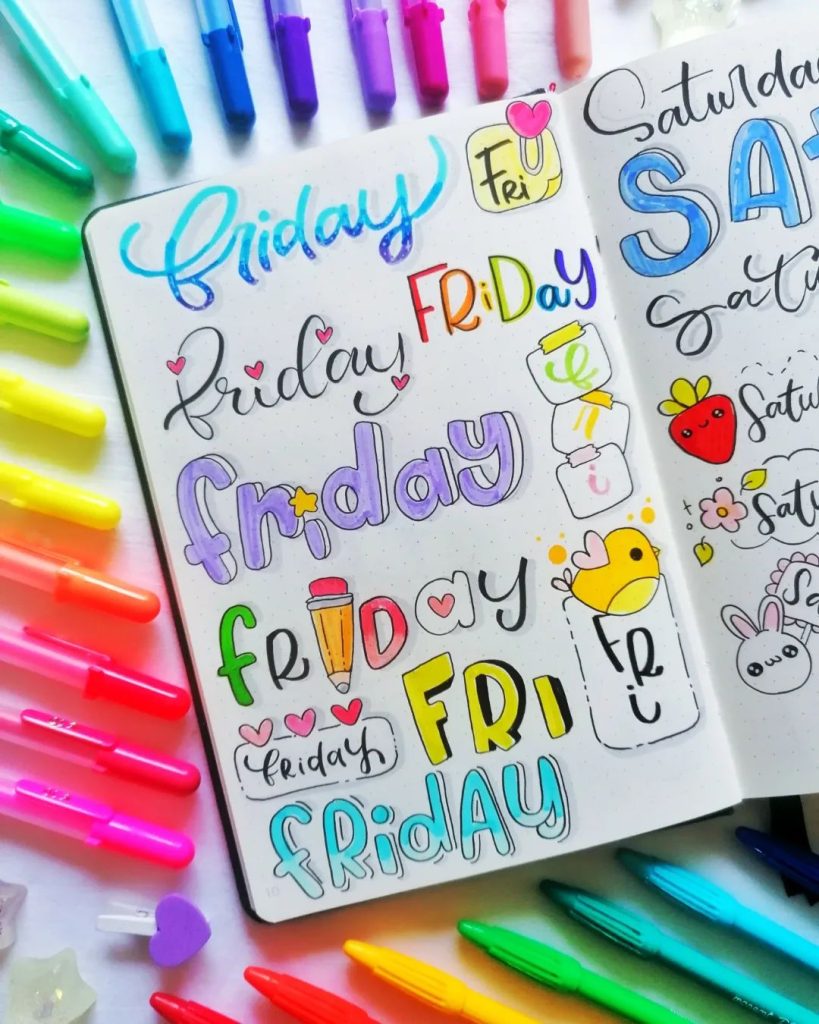 friday
Fri
FRiDay
friday
fri
friday
fRiDay
FRI
FRi
friday
fRidAy
10
Saturday
SAT
Satu
Satu
Satu
Sa